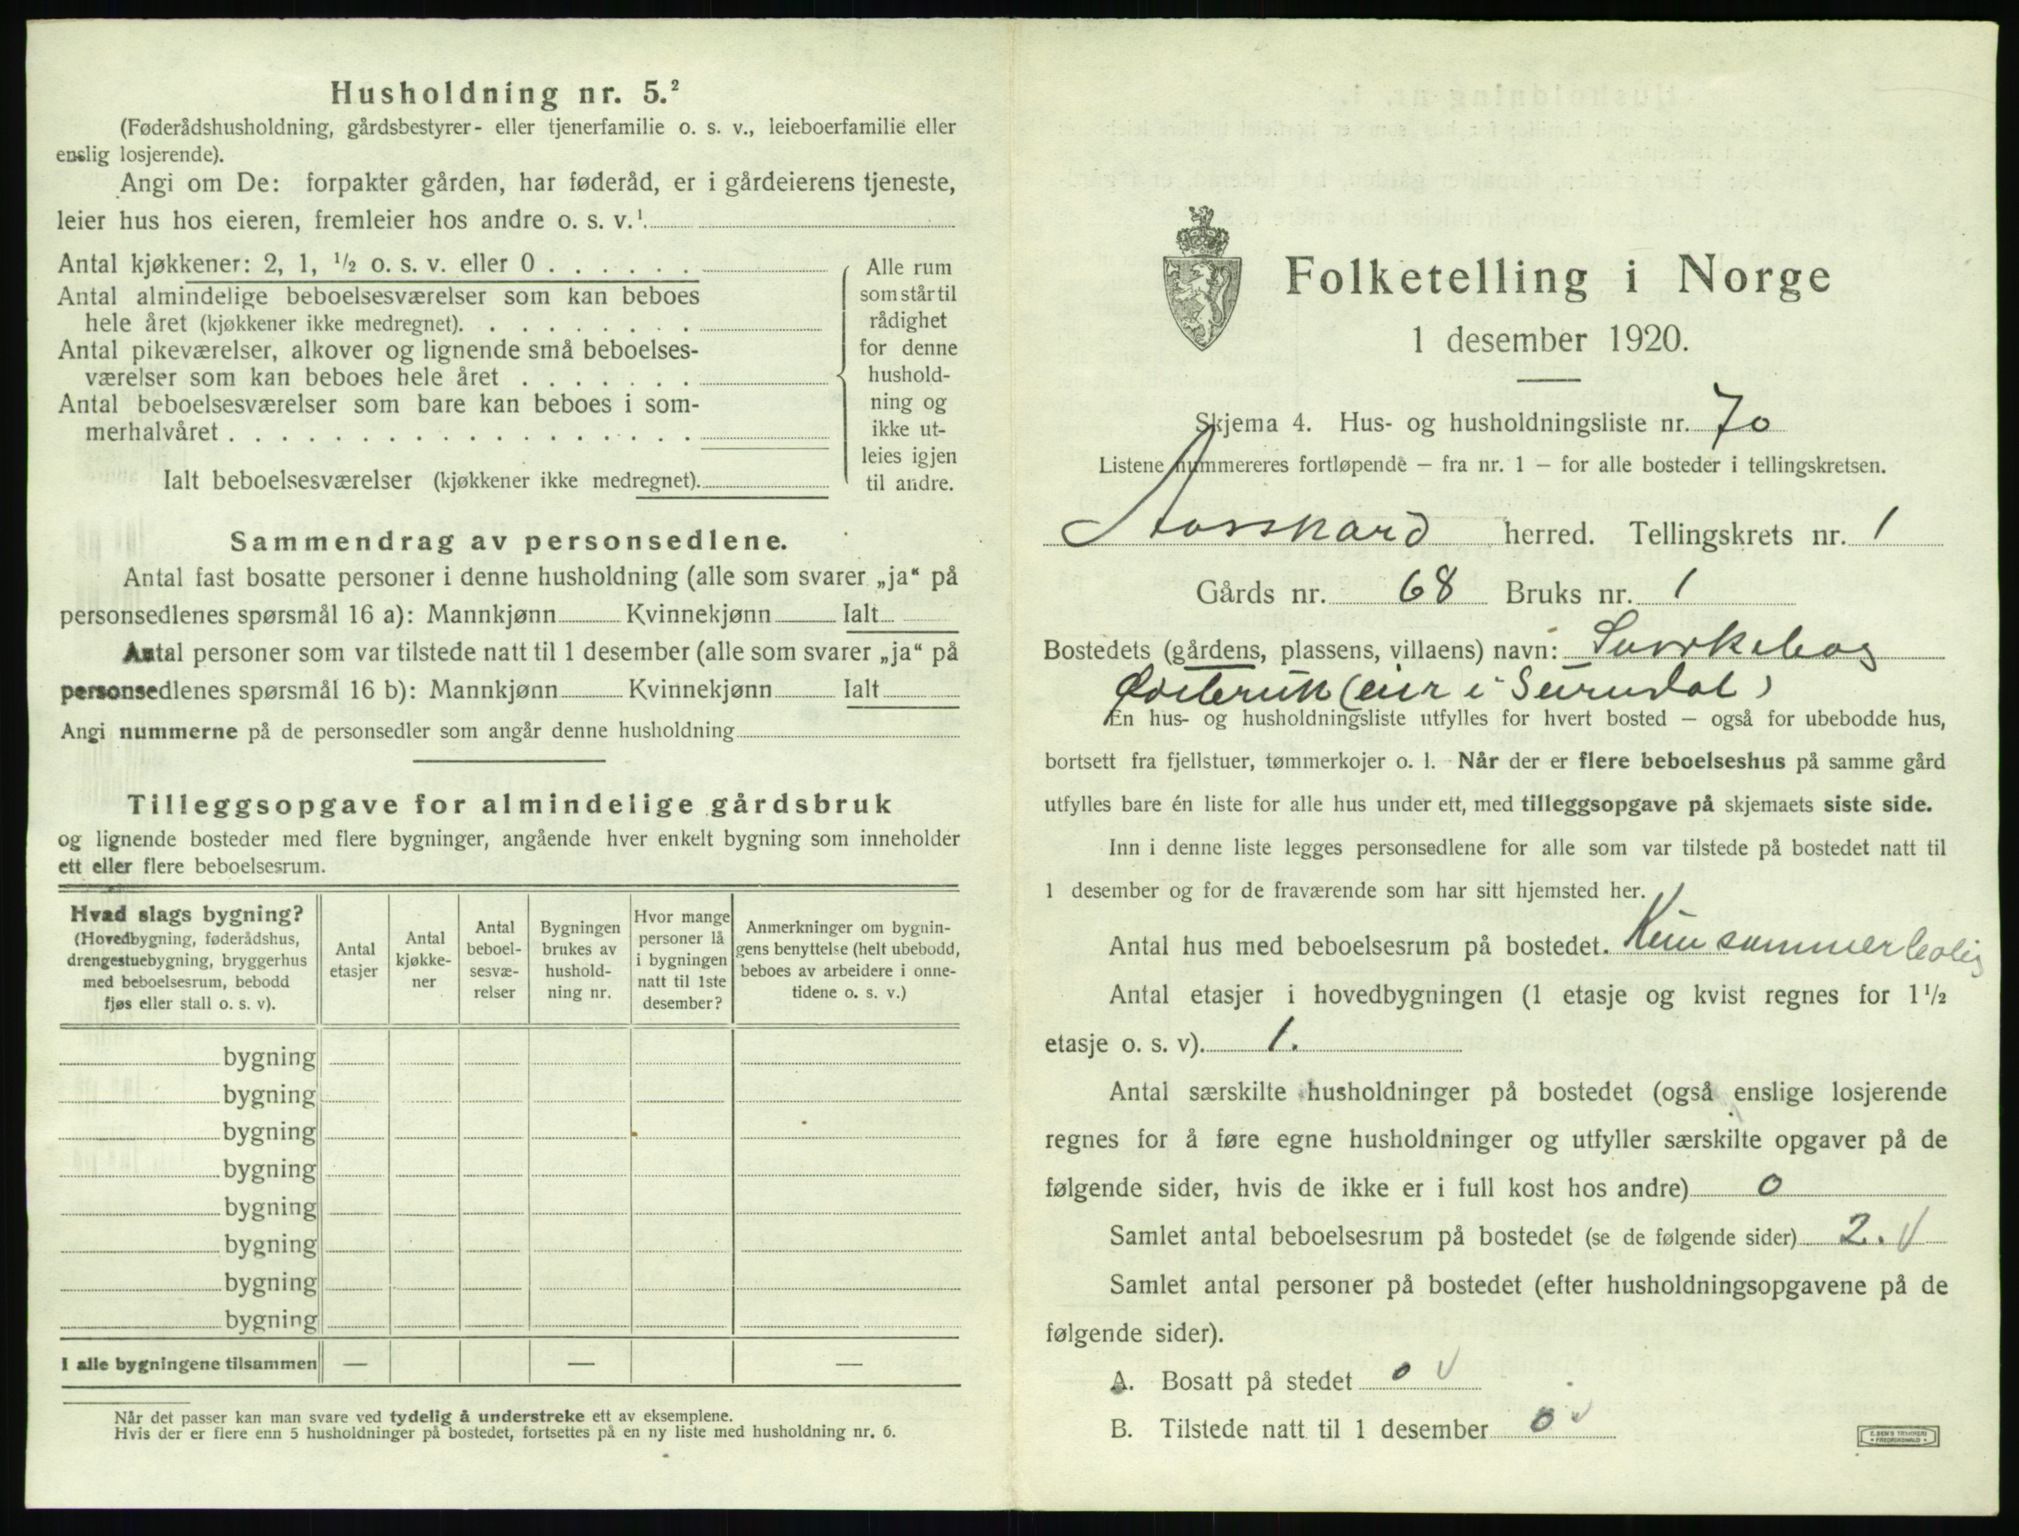 Husholdning nr. 5.²
(Føderådshusholdning, gårdsbestyrer- eller tjenerfamilie o. s. v., leieboerfamilie eller
enslig losjerende).
Angi om De: forpakter gården, har føderåd, er i gårdeierens tjeneste,
leier hus hos eieren, fremleier hos andre o. s. v.¹
Antal kjøkkener: 2, 1, ½ o. s. v. eller 0 . . . . . .
Antal almindelige beboelsesværelser som kan beboes
hele året (kjøkkener ikke medregnet). . . . . . . . .
Antal pikeværelser, alkover og lignende små beboelses-
værelser som kan beboes hele året . . . . . . .
Antal beboelsesværelser som bare kan beboes i som-
merhalvåret . . . . . . . . . . . . . . . . . .
Ialt beboelsesværelser (kjøkkener ikke medregnet).
Alle rum
som står til
rådighet
for denne
hushold-
ning og
ikke ut-
leies igjen
til andre.
Sammendrag av personsedlene.
Antal fast bosatte personer i denne husholdning (alle som svarer „ja“ på
personsedlenes spørsmål 16 a): Mannkjønn Kvinnekjønn Ialt
Antal personer som var tilstede natt til 1 desember (alle som svarer „ja“ på
personsedlenes spørsmål 16 b): Mannkjønn Kvinnekjønn Ialt
Angi nummerne på de personsedler som angår denne husholdning
Tilleggsopgave for almindelige gårdsbruk
og lignende bosteder med flere bygninger, angående hver enkelt bygning som inneholder
ett eller flere beboelsesrum.
Hvad slags bygning?
(Hovedbygning, føderådshus,
drengestuebygning, bryggerhus
med beboelsesrum, bebodd
fjøs eller stall o. s. v).
Antal
etasjer
Antal
kjøkke-
ner
Antal
beboel-
sesvæ-
relser
Bygningen
brukes av
hushold-
ning nr.
Hvor mange
personer lå
i bygningen
natt til 1ste
desember?
Anmerkninger om bygnin-
gens benyttelse (helt ubebodd,
beboes av arbeidere i onne-
tidene o. s. v.)
bygning
bygning
bygning
bygning
bygning
bygning
bygning
bygning
I alle bygningene tilsammen — — —
Når det passer kan man svare ved tydelig å understreke ett av eksemplene.
Hvis der er flere enn 5 husholdninger på bostedet, fortsettes på en ny liste med husholdning nr. 6.
Folketelling i Norge
1 desember 1920.
Skjema 4. Hus- og husholdningsliste nr. 70
Listene nummereres fortløpende – fra nr. 1 – for alle bosteder i tellingskretsen.
Aasskard herred. Tellingskrets nr. 1
Gårds nr. 68 Bruks nr. 1
Bostedets (gårdens, plassens, villaens) navn:
(eier i Surndal)
En hus- og husholdningsliste utfylles for hvert bosted – også for ubebodde hus,
bortsett fra fjellstuer, tømmerkojer o. l. Når der er flere beboelseshus på samme gård
utfylles bare én liste for alle hus under ett, med tilleggsopgave på skjemaets siste side.
Inn i denne liste legges personsedlene for alle som var tilstede på bostedet natt til
1 desember og for de fraværende som har sitt hjemsted her.
Antal hus med beboelsesrum på bostedet. Kun sommerbolig
Antal etasjer i hovedbygningen (1 etasje og kvist regnes for 1½
etasje o. s. v). 1.
Antal særskilte husholdninger på bostedet (også enslige losjerende
regnes for å føre egne husholdninger og utfyller særskilte opgaver på de
følgende sider, hvis de ikke er i full kost hos andre) 0
Samlet antal beboelsesrum på bostedet (se de følgende sider) 2. √
Samlet antal personer på bostedet (efter husholdningsopgavene på de
følgende sider).
A. Bosatt på stedet 0 √
B. Tilstede natt til 1 desember 0 √